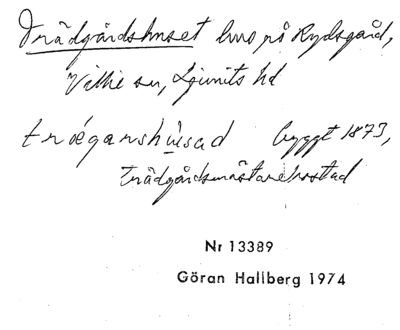 Trädgårdshuset hus på Rydsgård,
Villie sn, Ljunits hd
trǽgarshu̇sad byggt 1873,
trädgårdsmästarebostad
Nr 13389
Göran Hallberg 1974